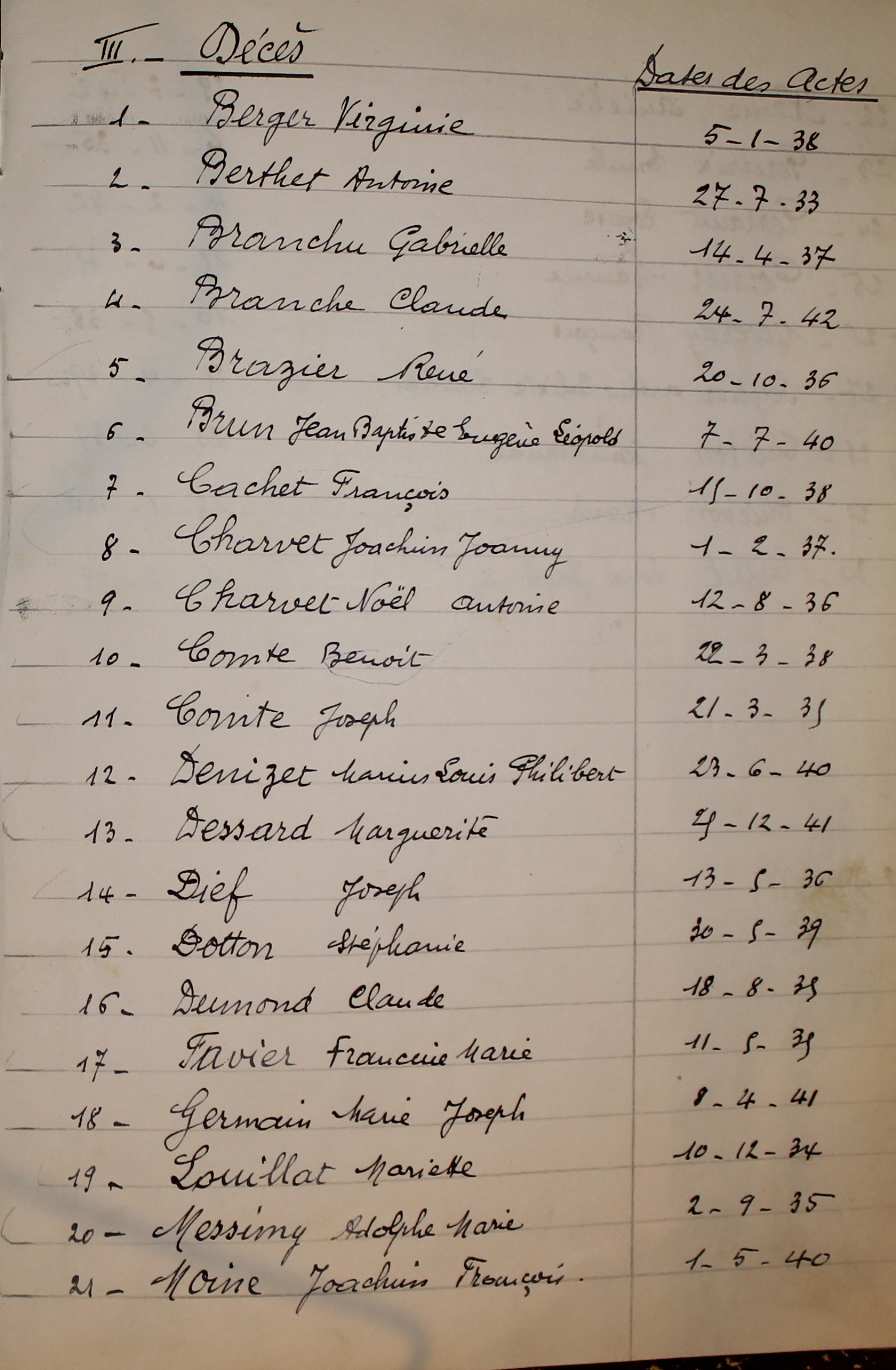 III. – Décès Dates des Actes
1 - Berger Virginie 5-1-38
2 - Berthet Antoine 27-7-33
3 - Branchu Gabrielle 14-4-37
4 - Branche Claude 24-7-42
5 - Brazier René 20-10-36
6 - Brun Jean Baptiste Eugène Léopold 7-7-40
7 - Cachet François 15-10-38
8 - Charvet Joachim Joanny 1-2-37.
9 - Charvet Noël Antoine 12-8-36
10 - Comte Benoit 22-3-38
11 - Comte Joseph 21-3-35
12 - Denizet Marius Louis Philibert 23-6-40
13 - Dessard Marguerite 25-12-41
14 - Dief Joseph 13-5-36
15 - Dotton Stéphanie 30-5-39
16 - Dumond Claude 18-8-35
17 - Favier Francine Marie 11-5-35
18 - Germain Marie Joseph 8-4-41
19 - Louillat Mariette 10-12-34
20 - Messimy Adolphe Marie 2-9-35
21 - Moine Joachim François. 1-5-40